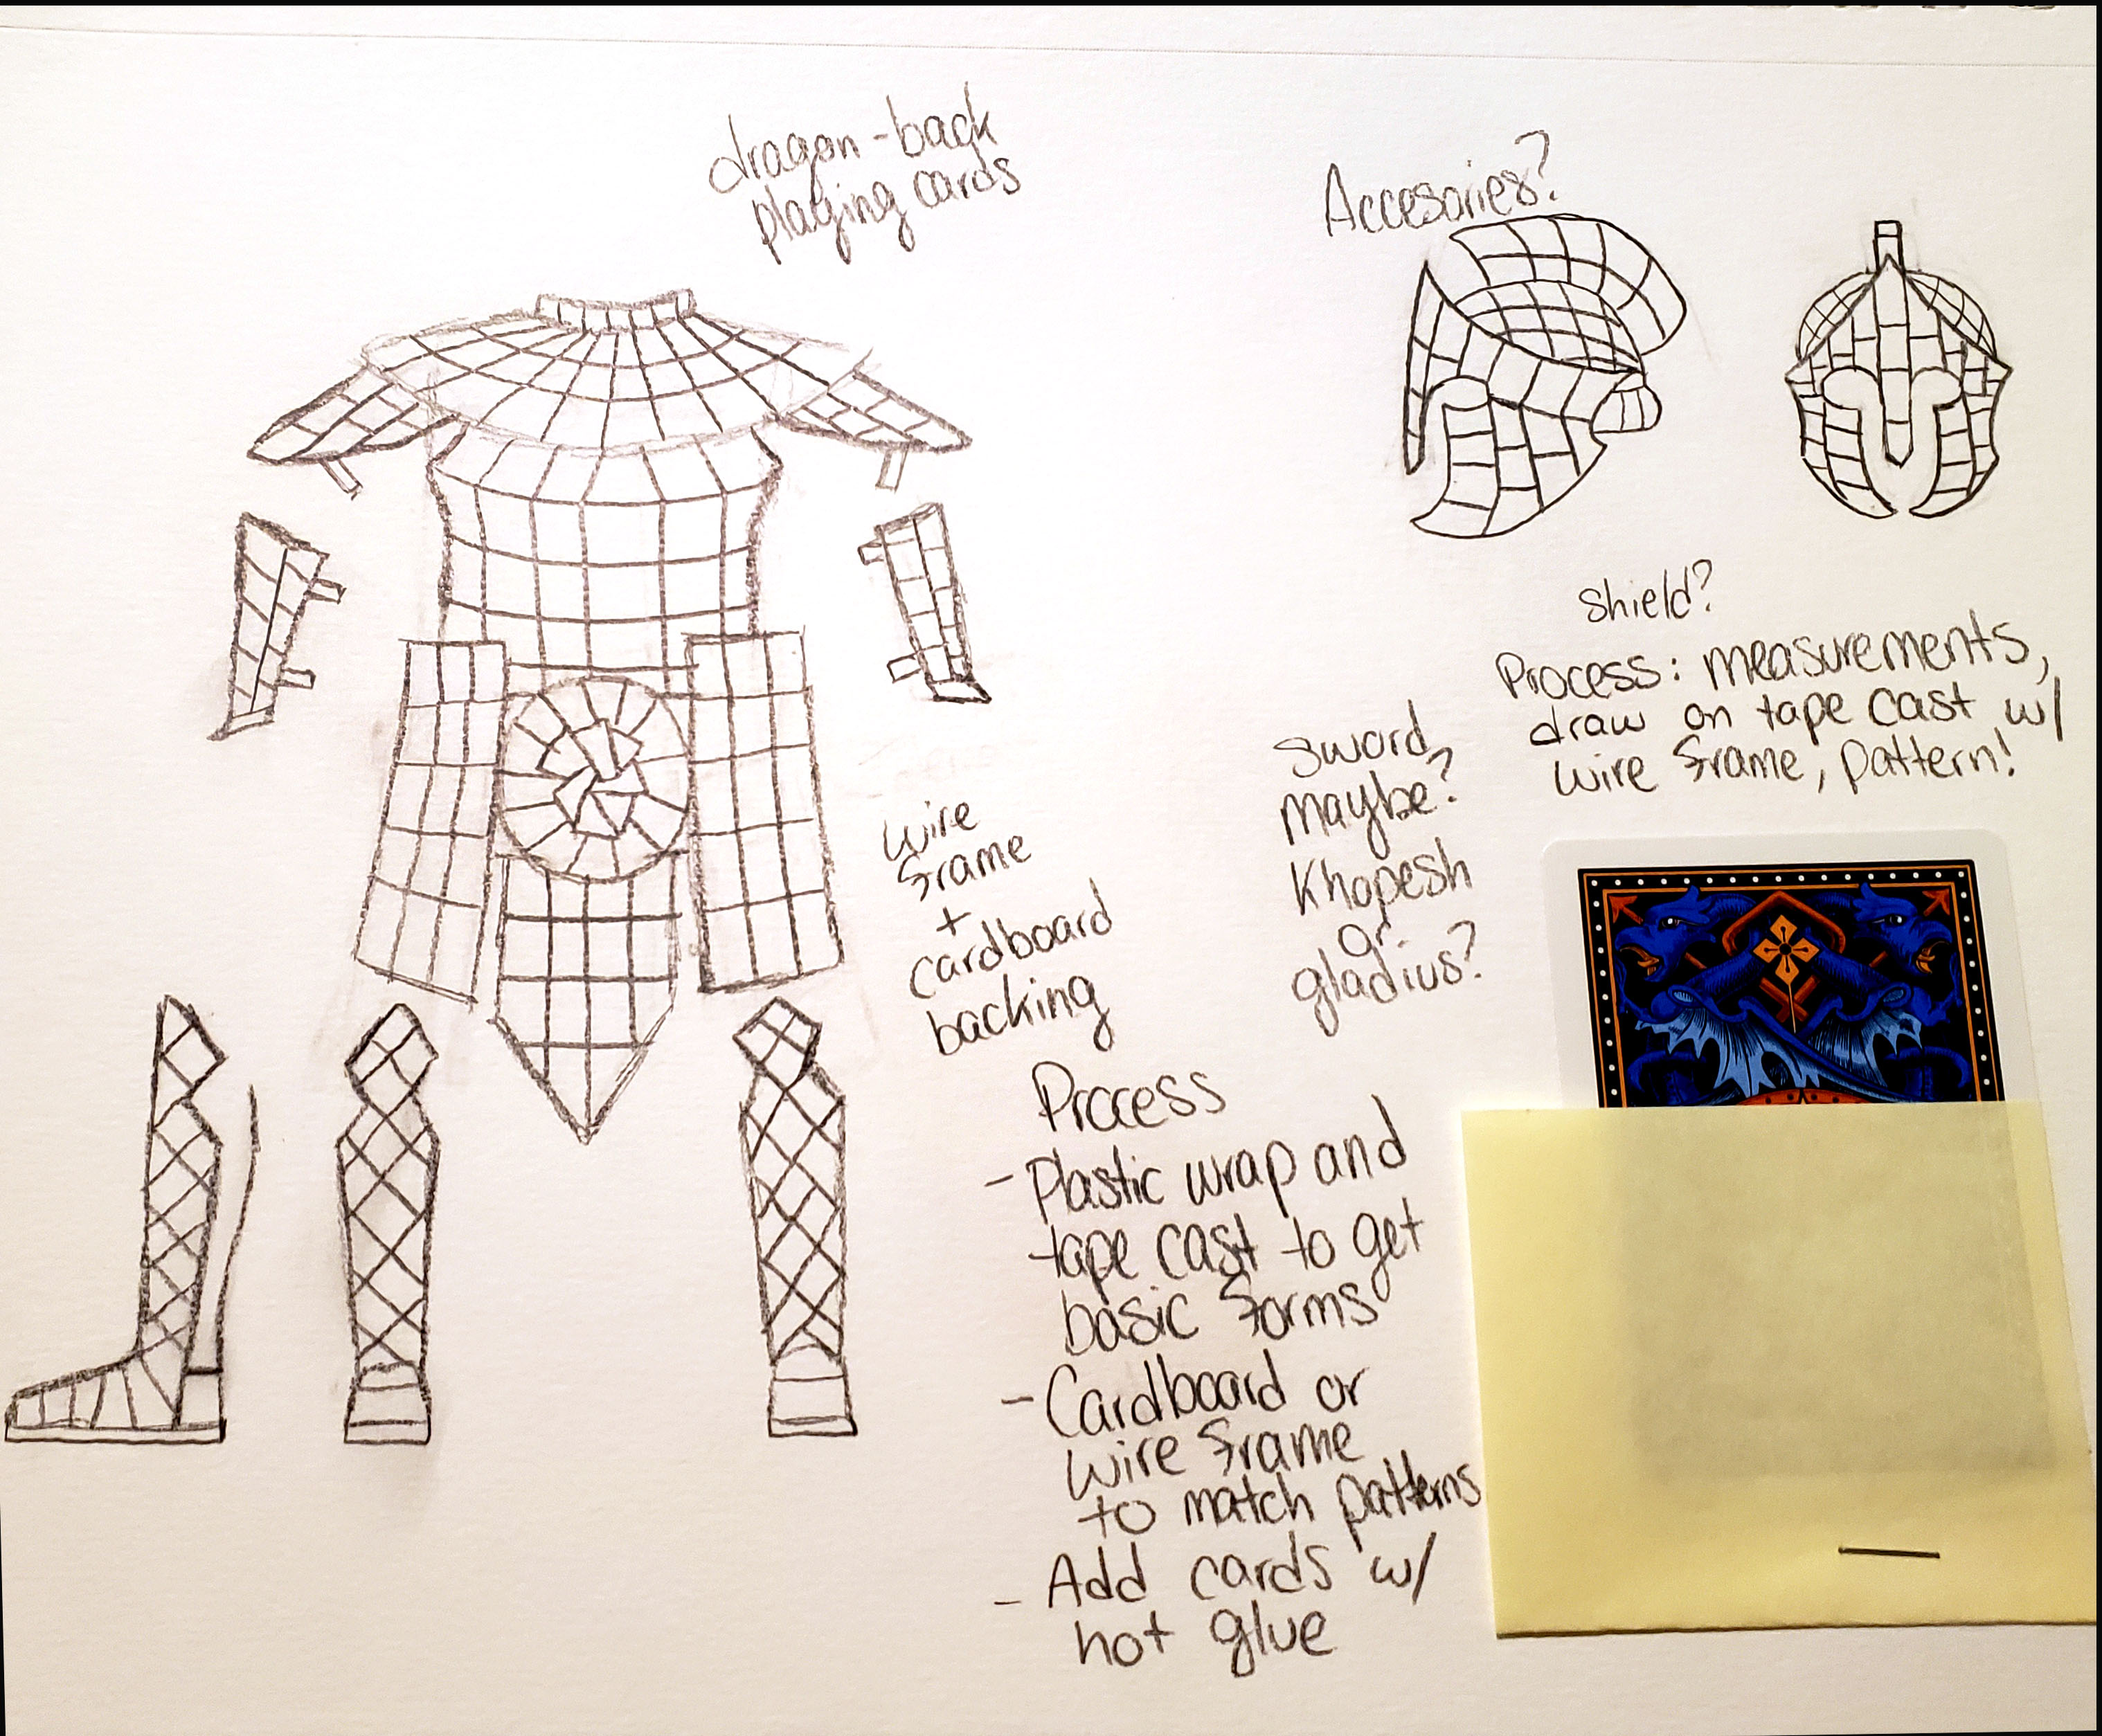 dragon-back
playing cards
Accesories?
shield?
Process: measurements,
draw on tape cast w/
wire frame, pattern!
sword,
maybe?
Khopesh
or
gladius?
wire
frame
+
cardboard
backing
Process
- Plastic wrap and
tape cast to get
basic forms
- Cardboard or
wire frame
to match patterns
- Add cards w/
hot glue